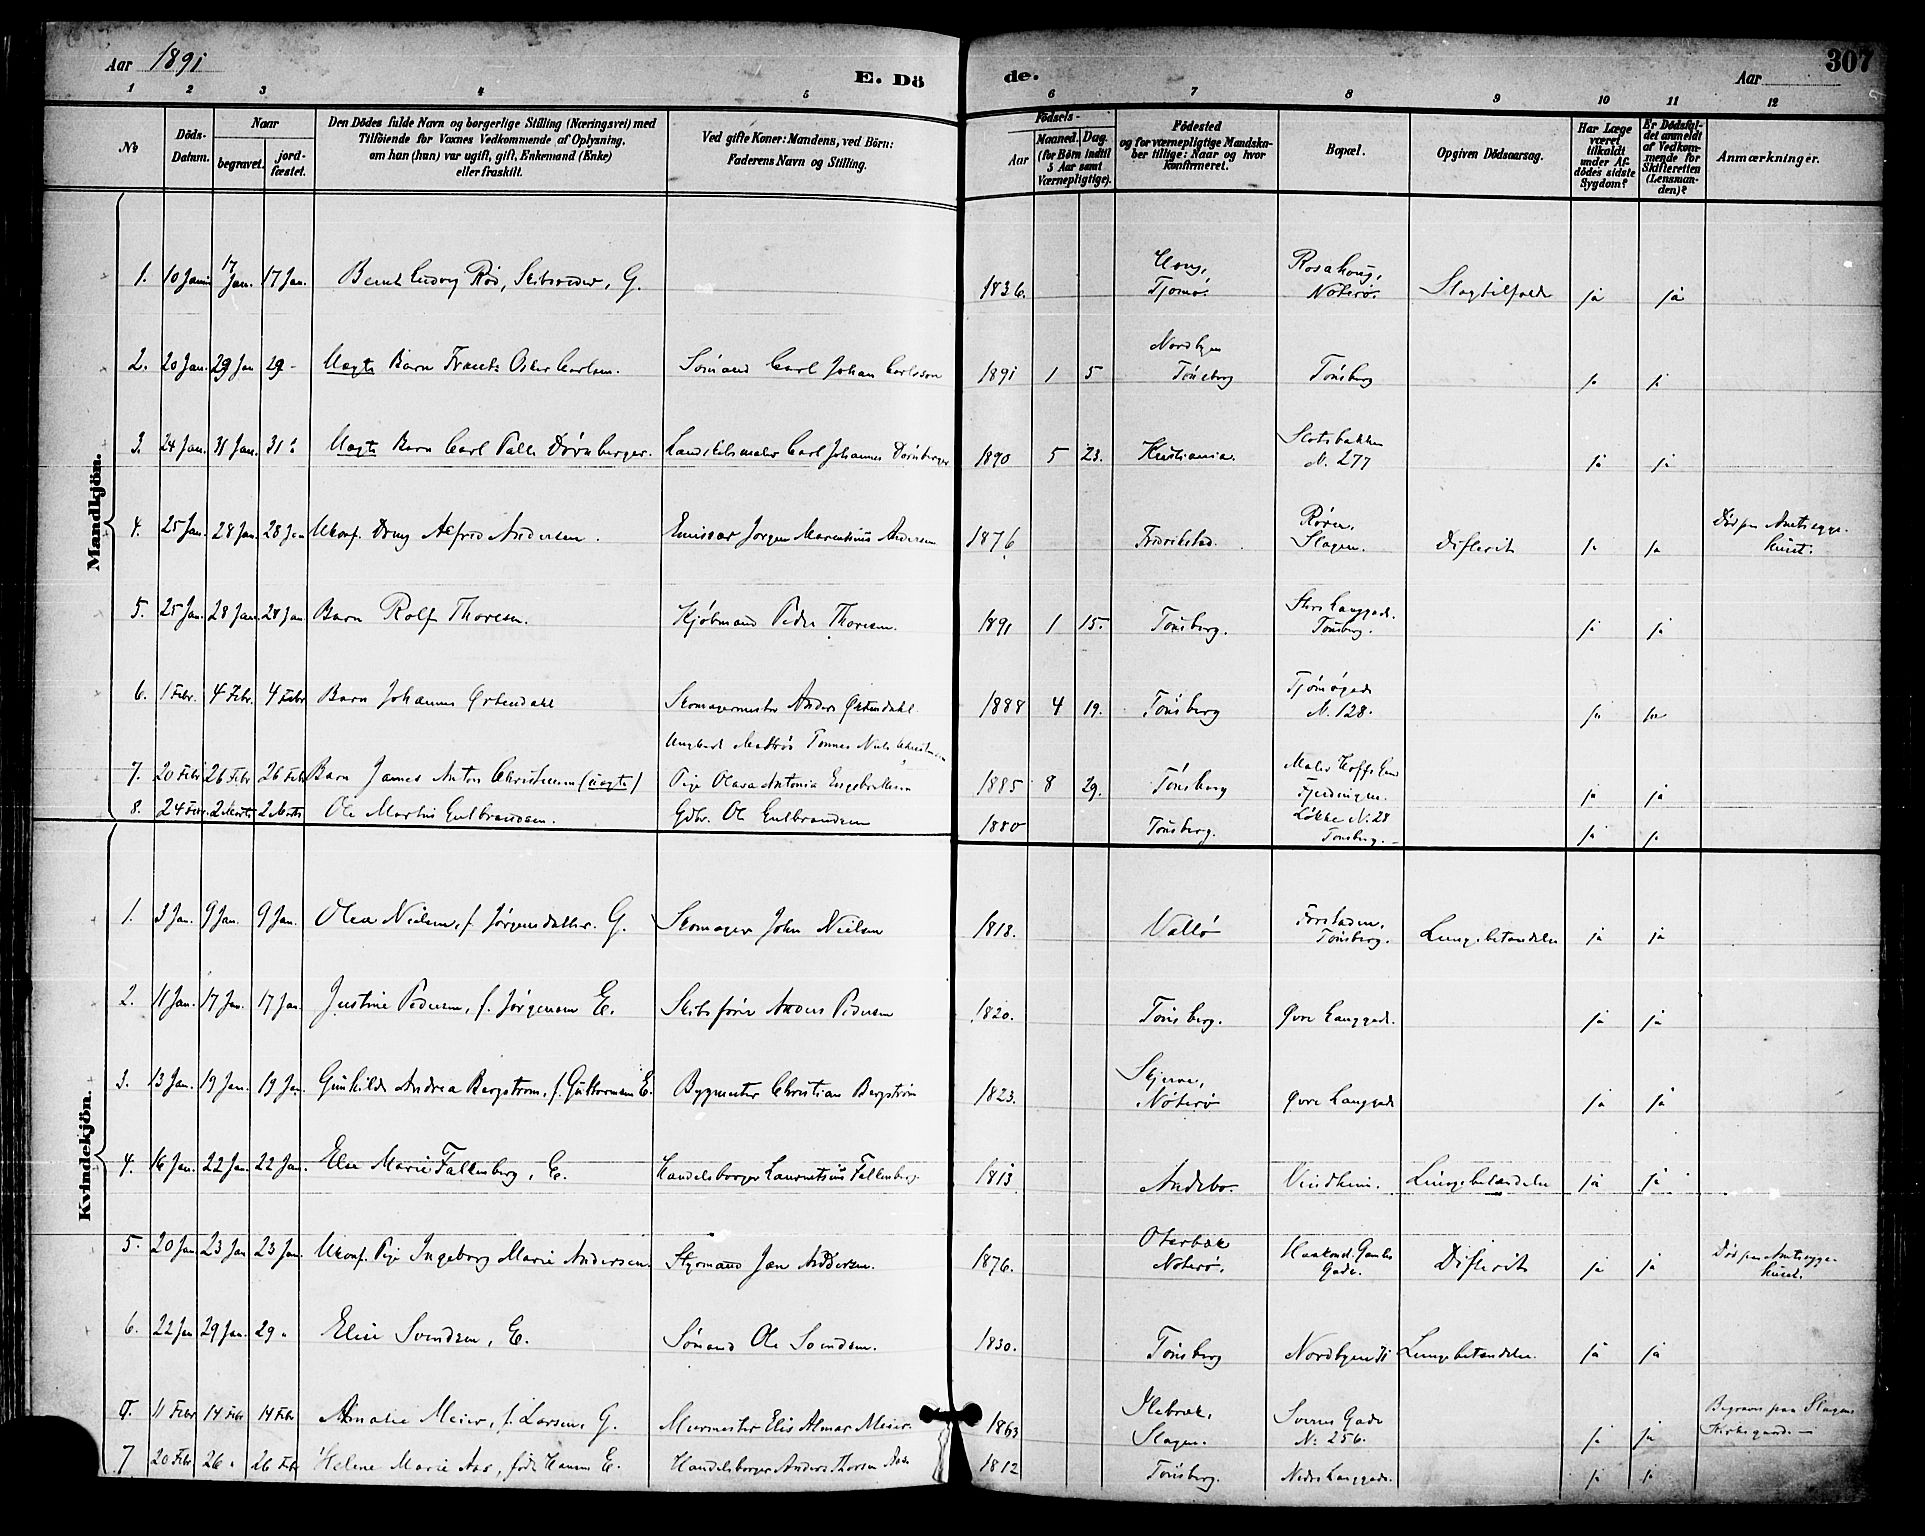 Aar 1891
E. Dö
de.
Aar
307
1 2 3 4 5 6 7 8 9 10 11 12
No
Döds-Datum.
Naar
begravet.
jordfæstet.
Den Dödes fulde Navn og borgerlige Stilling (Næringsvei) med Tilföiende for Voxnes Vedkommende af Oplysning, om han (hun) var ugift, gift, Enkemand (Enke) eller fraskilt.
Ved gifte Koner: Mandens, ved Börn: Faderens Navn og Stilling.
Födsels-
Aar
Maaned. Dag. (for Børn indtil 5 Aar samt Værnepligtige).
Födested og for værnepligtige Mandskaber tillige: Naar og hvor konfirmeret.
Bopæl.
Opgiven Dödsaarsag.
Har Læge været tilkaldt under Afdödes sidste Sygdom?
Er Dödsfaldet anmeldt af Vedkommende for Skifteretten (Lensmanden)?
Anmærkninger.
Mandkjön.
1. 10 Jan 17 Jan. 17 Jan. Bernt Ludvig Rød, Skibsreder, G. 1836. Tjømø. Rosahoug, Nøterø. Slagtilfælde ja ja
2. 20 Jan. 29 Jan 29 - Uægte Barn Frants Oskar Carlsen. Sømand Carl Johan Carlsson 1891 1 5 Nordbyen Tønsberg Tønsberg ja ja
3. 24 Jan. 31 Jan. 31 " Uægte Barn Carl Palle Dørnberger. Landskabsmaler Carl Johannes Dørnberger 1890 5 23. Kristiania. Slotsbakken N. 277 ja ja
4. 25 Jan. 28 Jan. 28 Jan Ukonf. Dreng Alfred Andersen. Emissær Jørgen Marentinius Andersen 1876 Fredrikstad. Røren, Slagen. Difterit ja ja Død paa Amtssygehuset.
5. 25 Jan. 28 Jan. 28 Jan Barn Rolf Thoresen. Kjøbmand Peder Thoresen. 1891 1 15. Tønsberg. Store Langgade. Tønsberg. ja ja
6. 1 Febr. 4 Febr. 4 Febr Barn Johannes Ørtendahl Skomagermester Anders Ørtendahl 1888 4 19. Tønsberg Tjømøgade N. 128. ja ja
7. 20 Febr 26 Febr 26 Febr Barn James Anton Christensen (uægte) Ungkarl Matros Tønnes Nils Christensen Pige Olava Antonia Engebretsen 1885 8 29. Tønsberg Maler Hoffs Gaard Fjerdingen. ja ja
8. 24 Febr. 2 Marts 2 Marts Ole Martin Gulbrandsen. Gdbr. Ole Gulbrandsen 1880 Tønsberg. Løkke N. 28 Tønsberg. - ja ja
Kvindekjön.
1. 3 Jan. 9 Jan. 9 Jan. Olea Nielsen, f. Jørgensdatter. G. Skomager John Nielsen 1818. Vallø Forstaden, Tønsberg. Lungebetændelse ja ja
2. 11 Jan. 17 Jan. 17 Jan. Justine Pedersen, f. Jørgensen E. Skibsfører Anders Pedersen 1820. Tønsberg. Øvre Langgade. ja ja
3. 13 Jan. 19 Jan. 19 Jan. Gunhilde Andrea Bergstrøm, f. Guttormsen E. Bygmester Christian Bergstrøm 1823. Skjerve, Nøterø Øvre Langgade ja ja
4. 16 Jan. 22 Jan. 22 Jan. Elen Marie Falkenberg, E. Handelsborger Laurentsius Falkenberg. 1813 Andebo. Vindheim. Lungebetændelse ja ja
5. 20 Jan 23 Jan 23 Jan. Ukonf. Pige Ingeborg Marie Andersen. Styrmand Jan Andersen. 1876. Oterbæk Nøterø. Haakond Gamles Gade. Difterit ja ja Død paa Amtssygehuset.
6. 22 Jan 29 Jan. 29 " Elise Svendsen, E. Sømand Ole Svendsen. 1830. Tønsberg Nordbyen Lungebetændelse. ja ja
11 Febr 14 Febr 14 Febr Amalie Meier, f. Larsen, G. Murmester Elis Almar Meier. 1863 Ilebræk, Slagen. Sverres Gade N. 256. ja ja Begraves paa Slagens Kirkegaard. -
7 20 Febr 26 " 26 Febr Helene Marie Aas, født Hansen E. Handelsborger Anders Thorsen Aas 1812 Tønsberg. Nedre Langgade. ja ja